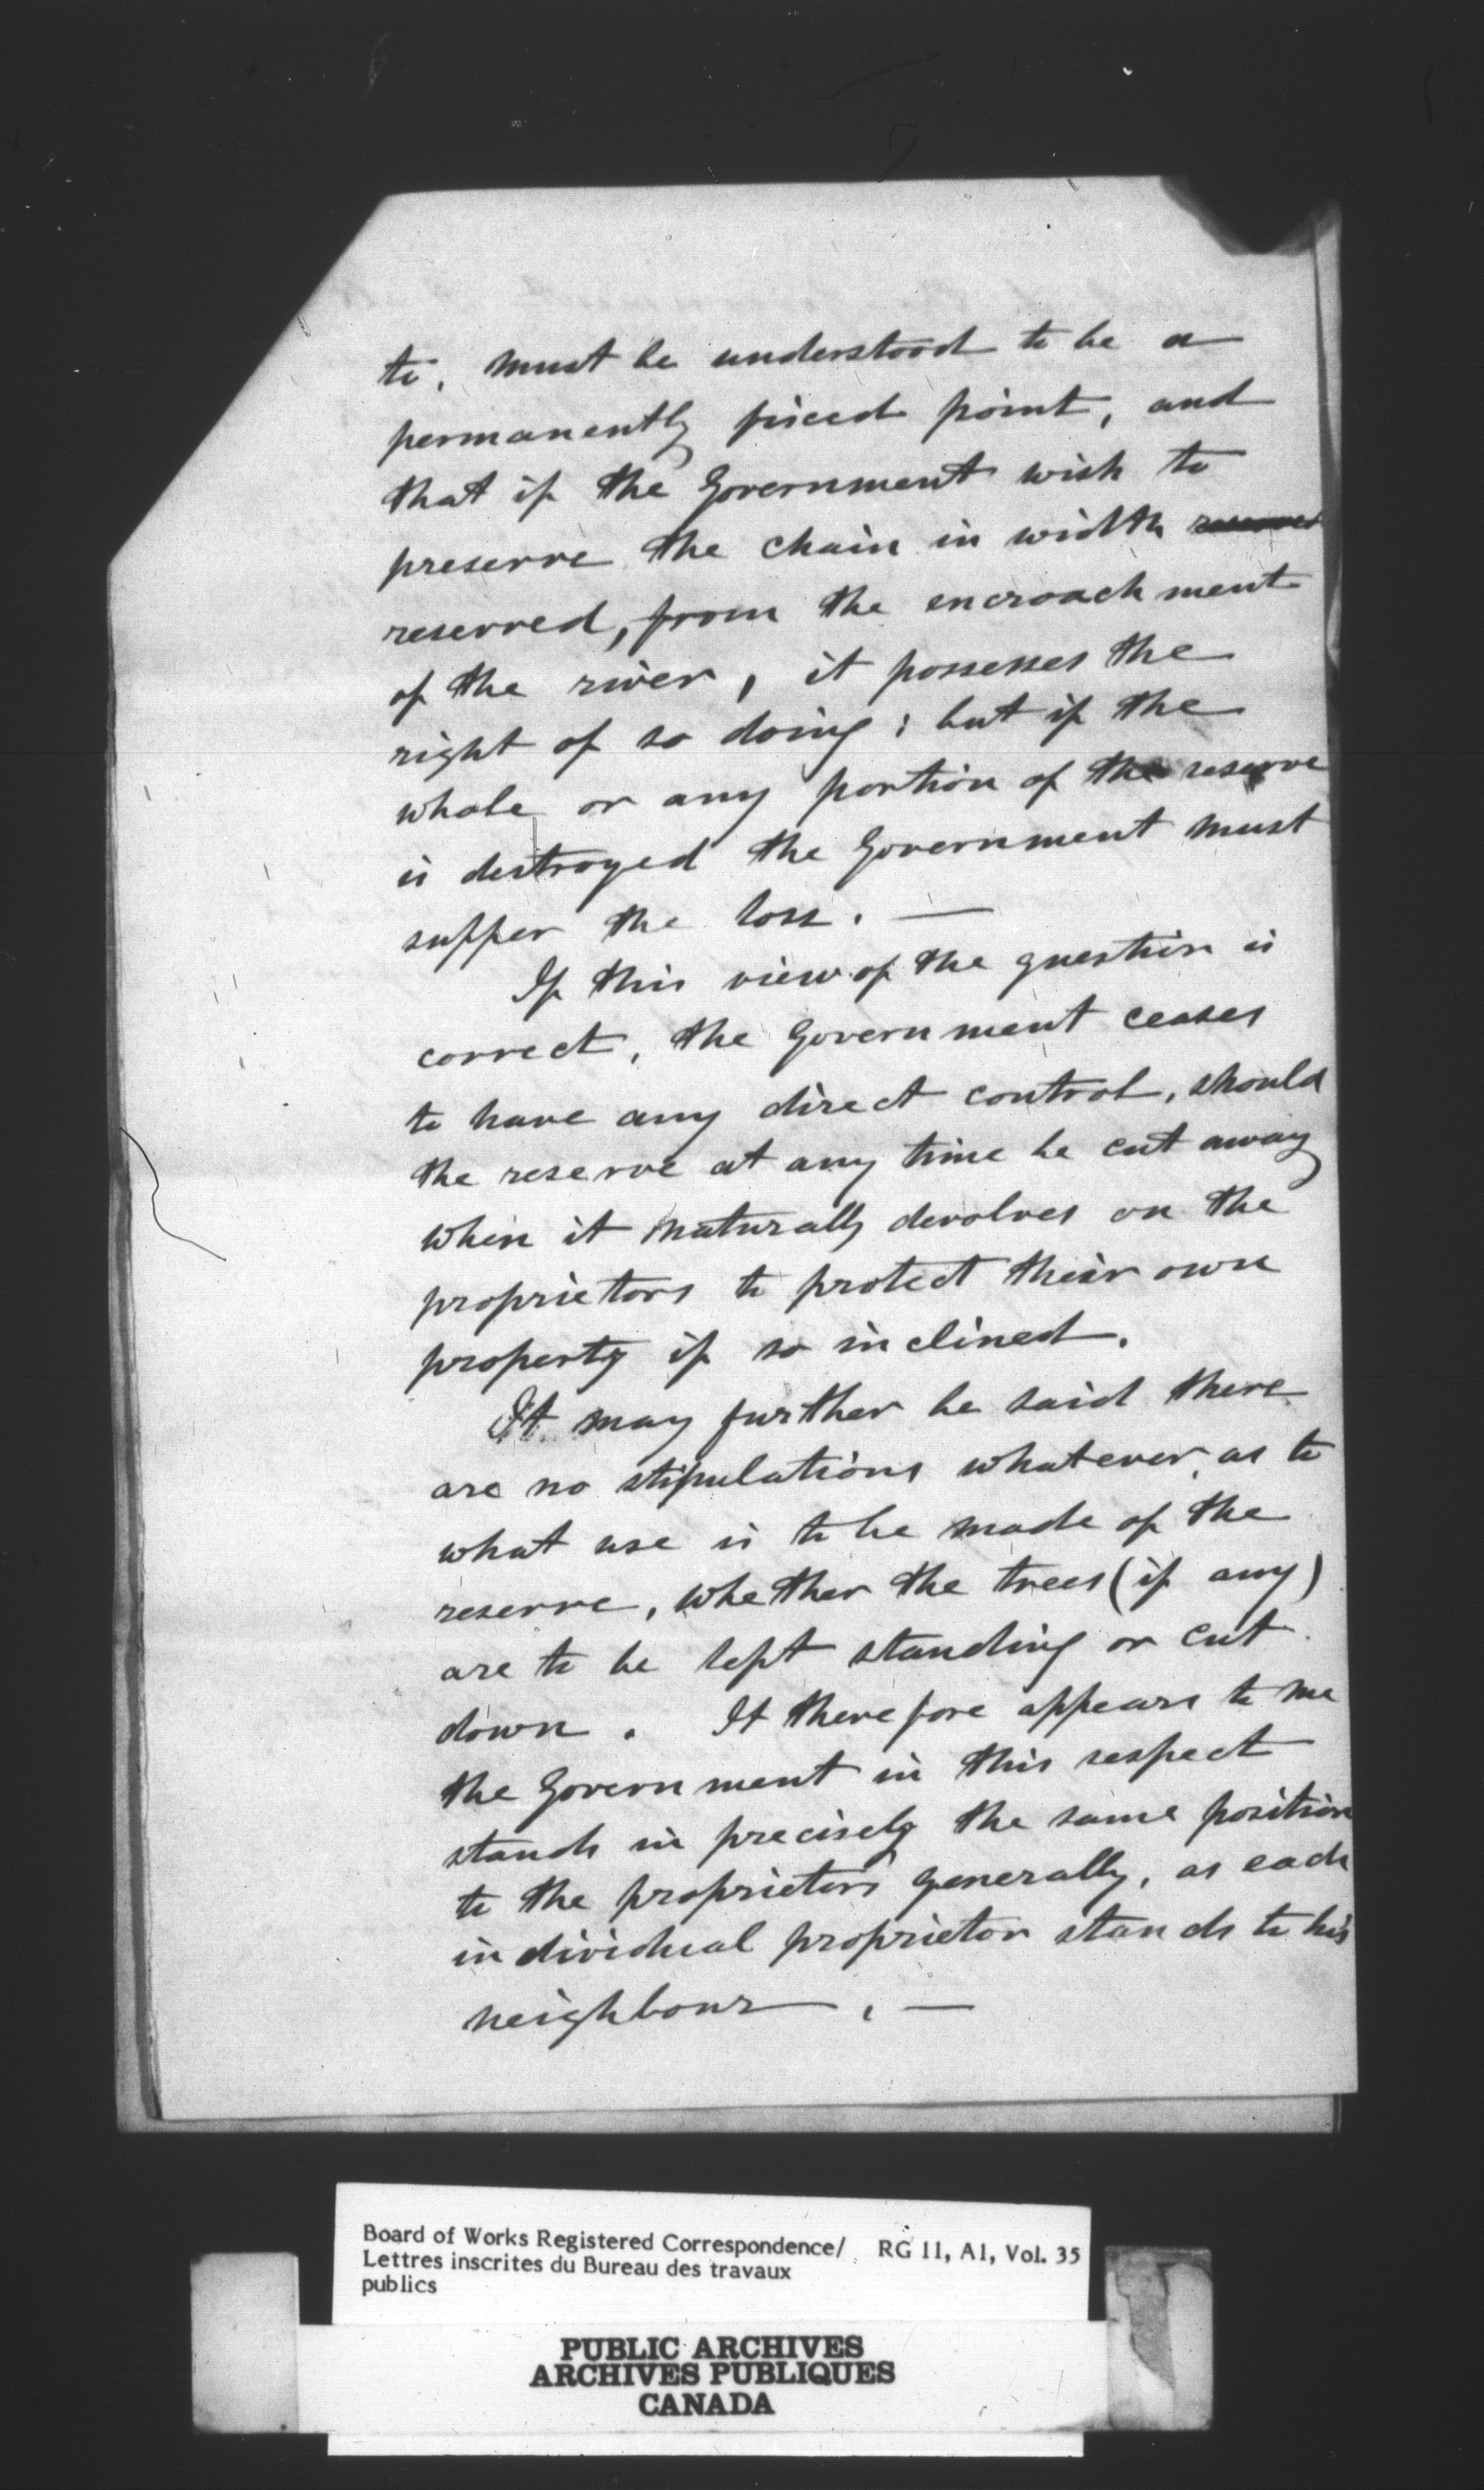 to, must be understood to be a
permanently fixed point, and
that if the Government wish to
preserve the chain in width reserved
reserved, from the encroachment
of the river, it possesses the
right of so doing; but if the
whole or any portion of the reserve
is destroyed the Government must
suffer the loss. —
If this view of the question is
correct, the Government ceases
to have any direct control, should
the reserve at any time be cut away
when it naturally devolves on the
proprietors to protect their own
property if so inclined.
It may further be said there
are no stipulations whatever, as to
what use is to be made of the
reserve, whether the trees (if any)
are to be left standing or cut
down. It therefore appears to me
the Government in this respect
stands in precisely the same position
to the proprietors generally, as each
individual proprietor stands to his
neighbour. —
Board of Works Registered Correspondence/ RG 11, A1, Vol. 35
Lettres inscrites du Bureau des travaux
publics
PUBLIC ARCHIVES
ARCHIVES PUBLIQUES
CANADA